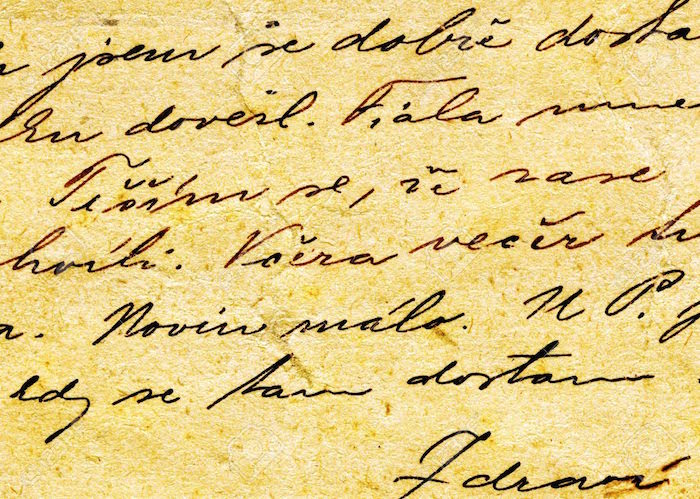 jsem se dobře dosta
dovezl. Fiala mne
Těším se, že zase
chvíli. Včera večer
a. Novin málo. U P.
kdy se tam dostanu
Zdraví